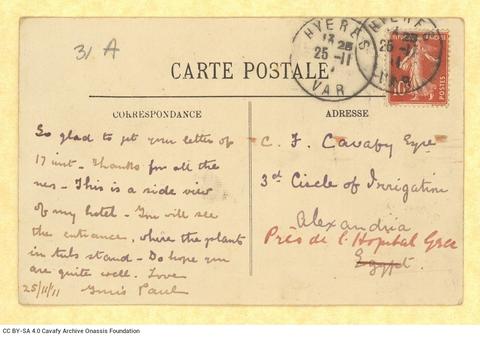 31 A
HYERES
13 25
25-11
VAR
HYERES
25-11
11
VAR
10c
CARTE POSTALE
CORRESPONDANCE
So glad to get your letter of
17 inst - Thanks for all the
nes - This is a side view
of my hotel - You will see
the entrance, where the plants
in tubs stand - Do hope you
are quite well. Love
25/11/11 Yours Paul
ADRESSE
C. F. Cavafy Esqre
3d Circle of Irrigation
Alexandria
Près de l'Hopital Grec
Egypt.
CC BY-SA 4.0 Cavafy Archive Onassis Foundation